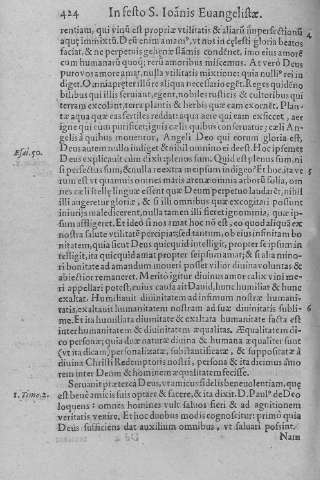 424 In festo S. Ioānis Euangelistæ.
rentiam, qui vinū est propriæ vtilitatis & aliarū imperfectionū 4
aquę immixtū. Deū enim amam⁹, vt nos in cęlesti gloria beatos
faciat, & ne perpetuis gehęnæ flāmis condēnet, imo eius amorē
cum humanorū quoq; rerū amoribus miscemus. At verò Deus
puro vos amore amat, nulla vtilitatis mixtione: quia nulli⁹ rei in
diget. Omnia præter ille res aliqua necessario eget. Reges quidē no
bilibus qui illis seruiant, egent, nobiles rusticis & cultoribus qui
terram excolant, terra plantis & herbis quæ eam exornēt. Plan-
tæ aqua quæ eas fertiles reddat: aqua aere qui eam exsiccet, aer
igne qui eum purificet: ignis cælis quibus conseruatur: cæli An-
gelis à quibus mouentur, Angeli Deo qui eorum gloria est,
Esai. 50. Deus autem nullo indiget & nihil omnino ei deest. Hoc ipsemet
Deus explicauit cùm dixit: plenus sum. Quid est plenus sum, ni
si perfectus sum, & nulla re extra me ipsum indigeo? Et hoc ita ve 5
rum est vt quamuis omnes maris arenæ omnia arborū folia, om
nes cæli stellę linguæ essent quæ Deum perpetuo laudarēt, nihil
illi augeretur gloriæ, & si illi omnibus quæ excogitari possunt
iniurijs maledicerent, nulla tamen illi fieret ignominia, quæ ip-
sum affligeret. Et ideo si nos amat hoc nō est, eo quod aliquā ex
nostra salute vtilitatē percipiat sed tantum, ob eius infinitam bo
nitatem, quia sicut Deus quiequid intelligit, propter se ipsum in
telligit, ita quicquid amat propter se ipsum amat; & si alia mino-
ri bonitate ad amandum moueri posset vilior diuina voluntas &
abiectior remaneret. Merito igitur diuinus amor calix vini me-
ri appellari potest, cuius causa ait Dauid, hunc humiliat & hunc
exaltat. Humiliauit diuinitatem ad infimum nostræ humani-
tatis, exaltauit humanitatem nostram ad suæ diuinitatis subli- 6
me. Et ita humiliata diuinitate & exaltata humanitate facta est
inter humanitatem & diuinitatem æqualitas. Æqualitatem di-
co personæ; quia duæ naturæ diuina & humana æqualiter sunt
(vt ita dicam) personalitatæ, substantificatæ, & suppositatæ à
diuina Christi Redemptoris nostri, persona & ita dicimus amo
rem inter Deum & hominem æqualitatem fecisse.
Seruauit præterea Deus, vt amicus fidelis beneuolentiam, quę
1. Timo. 2. est benè amicis suis optare & facere, & ita dixit. D. Paul⁹ de Deo
loquens: omnes homines vult saluos fieri & ad agnitionem
veritatis venire. Et hoc duobus modis cognoscitur: primò quia
Deus sufficiens dat auxilium omnibus, vt saluari possint.
Nam